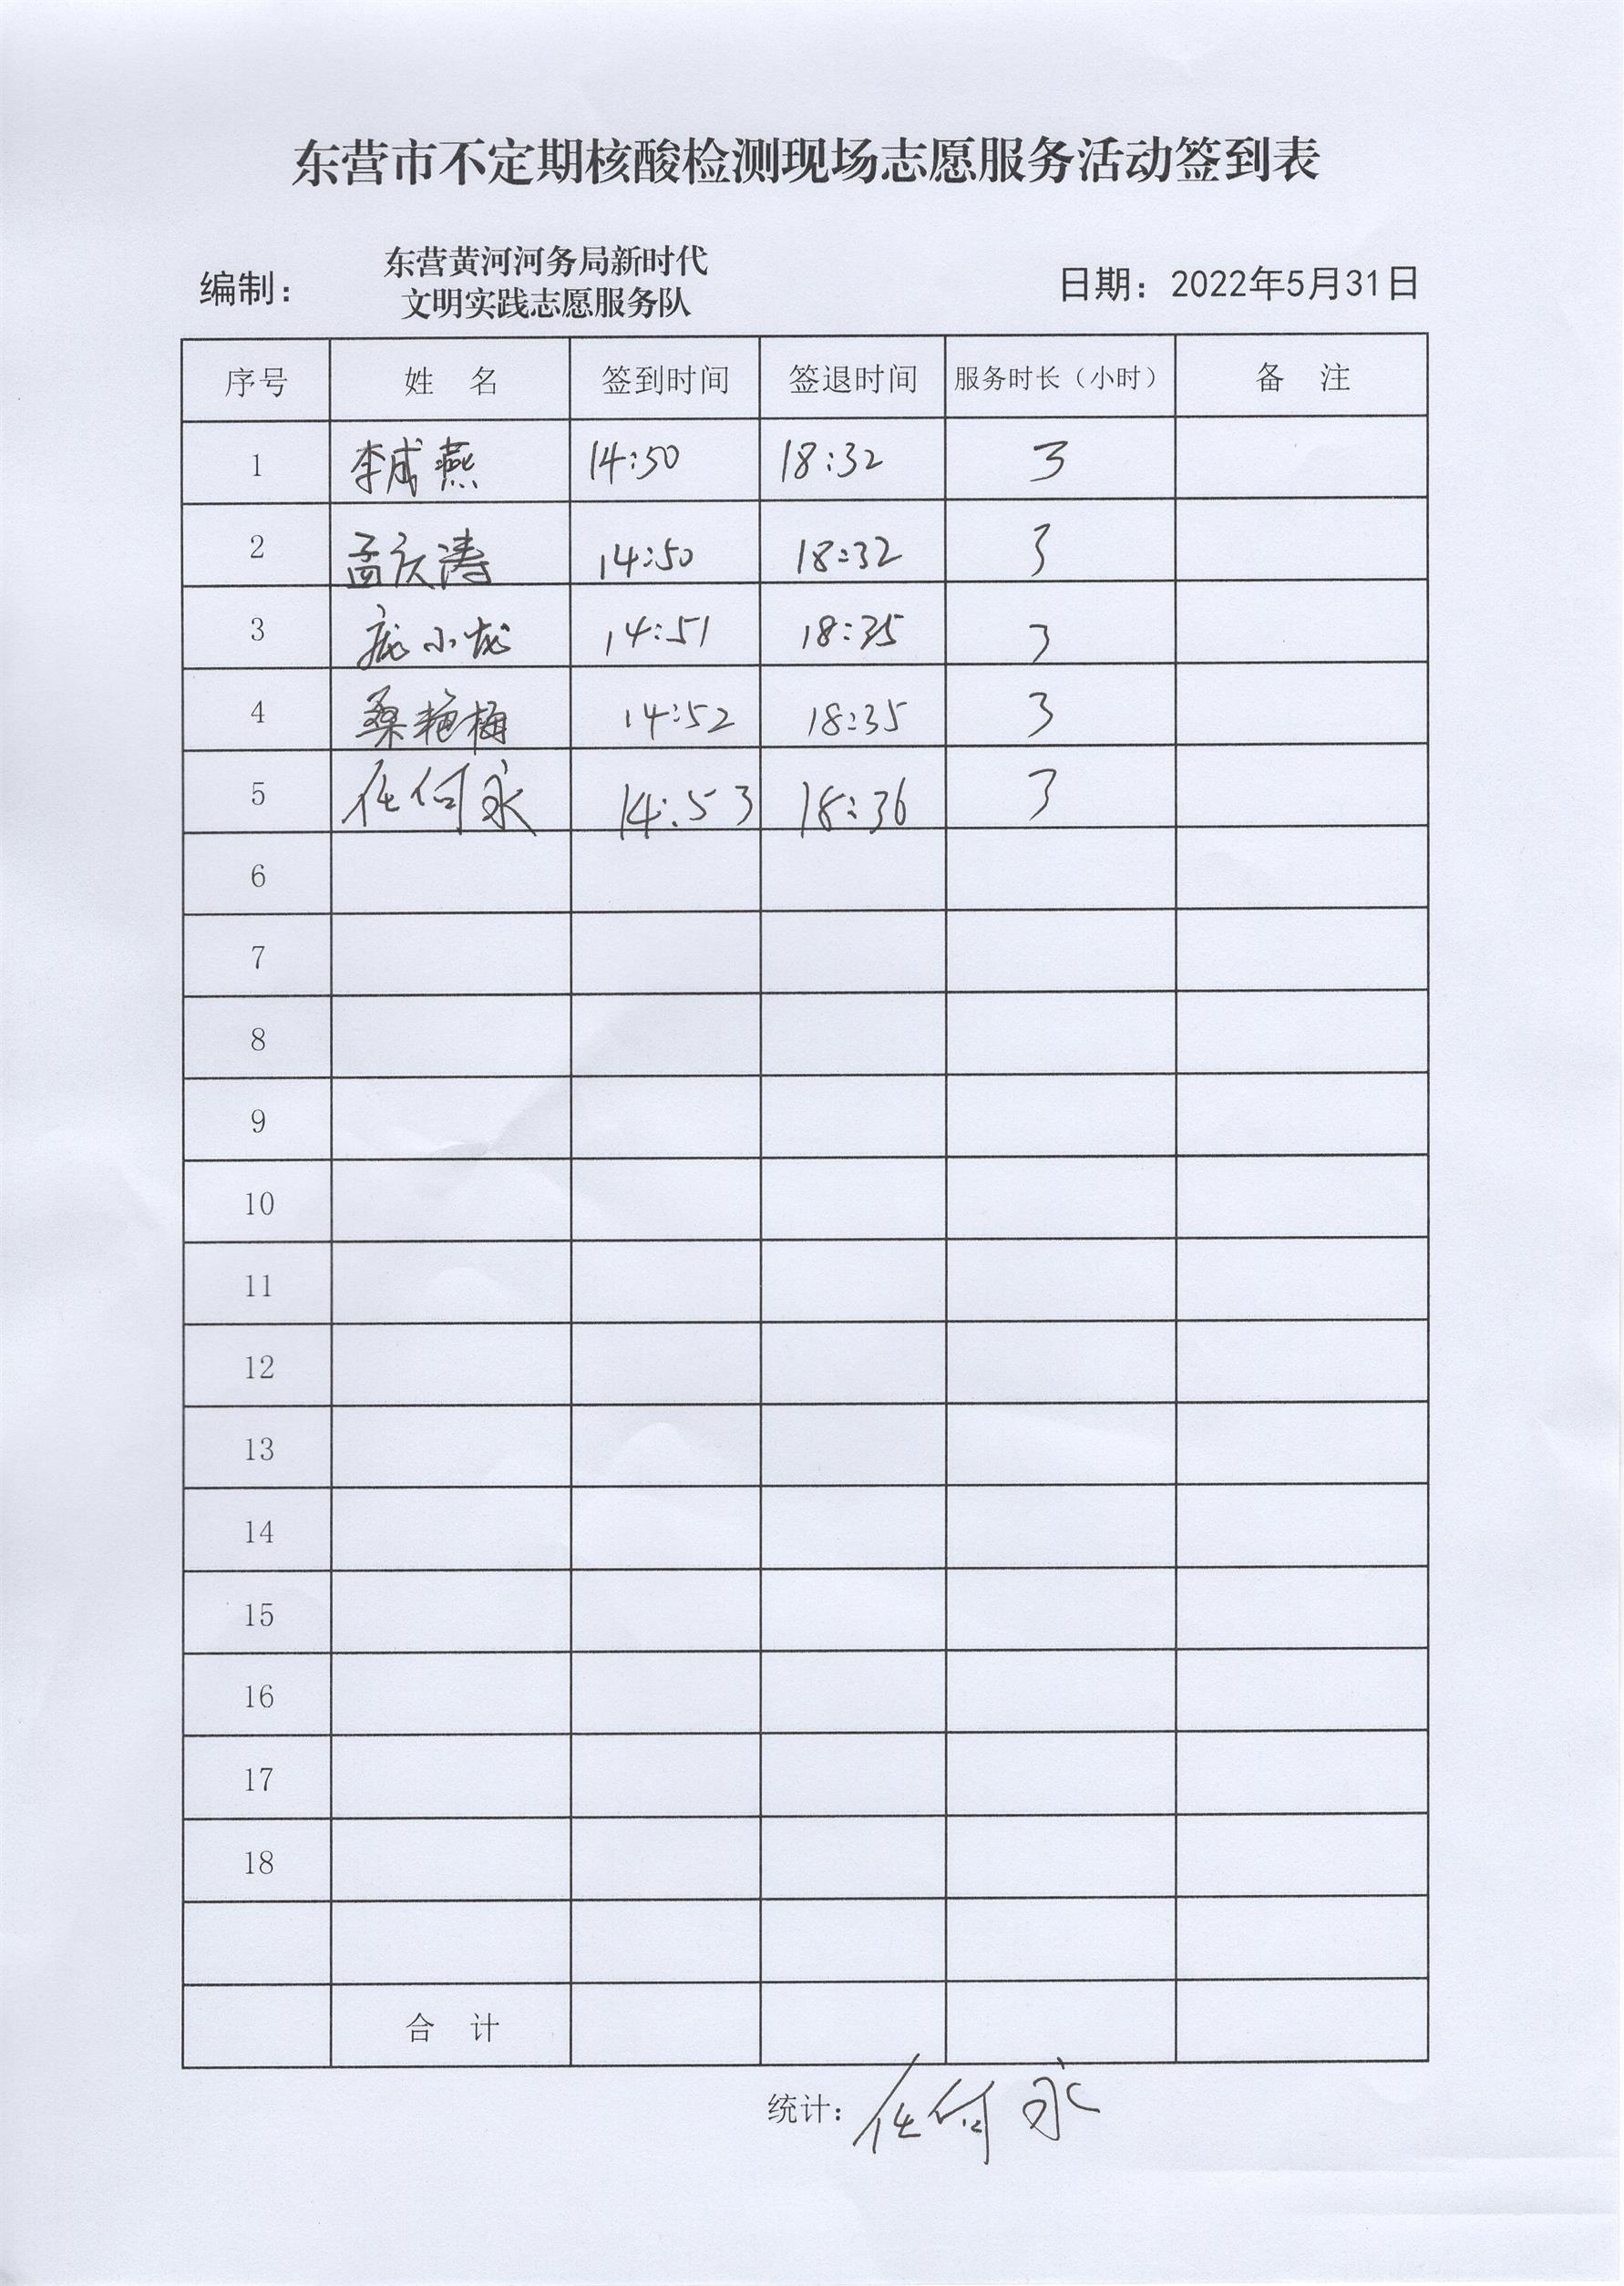 东营市不定期核酸检测现场志愿服务活动签到表
编制： 东营黄河河务局新时代
文明实践志愿服务队
日期：2022年5月31日
序号 姓 名 签到时间 签退时间 服务时长（小时） 备 注
1 李成燕 14:50 18:32 3
2 孟庆涛 14:50 18:32 3
3 庞小龙 14:51 18:35 3
4 桑艳梅 14:52 18:35 3
5 任何永 14:53 18:36 3
6
7
8
9
10
11
12
13
14
15
16
17
18
合 计
统计：任何永